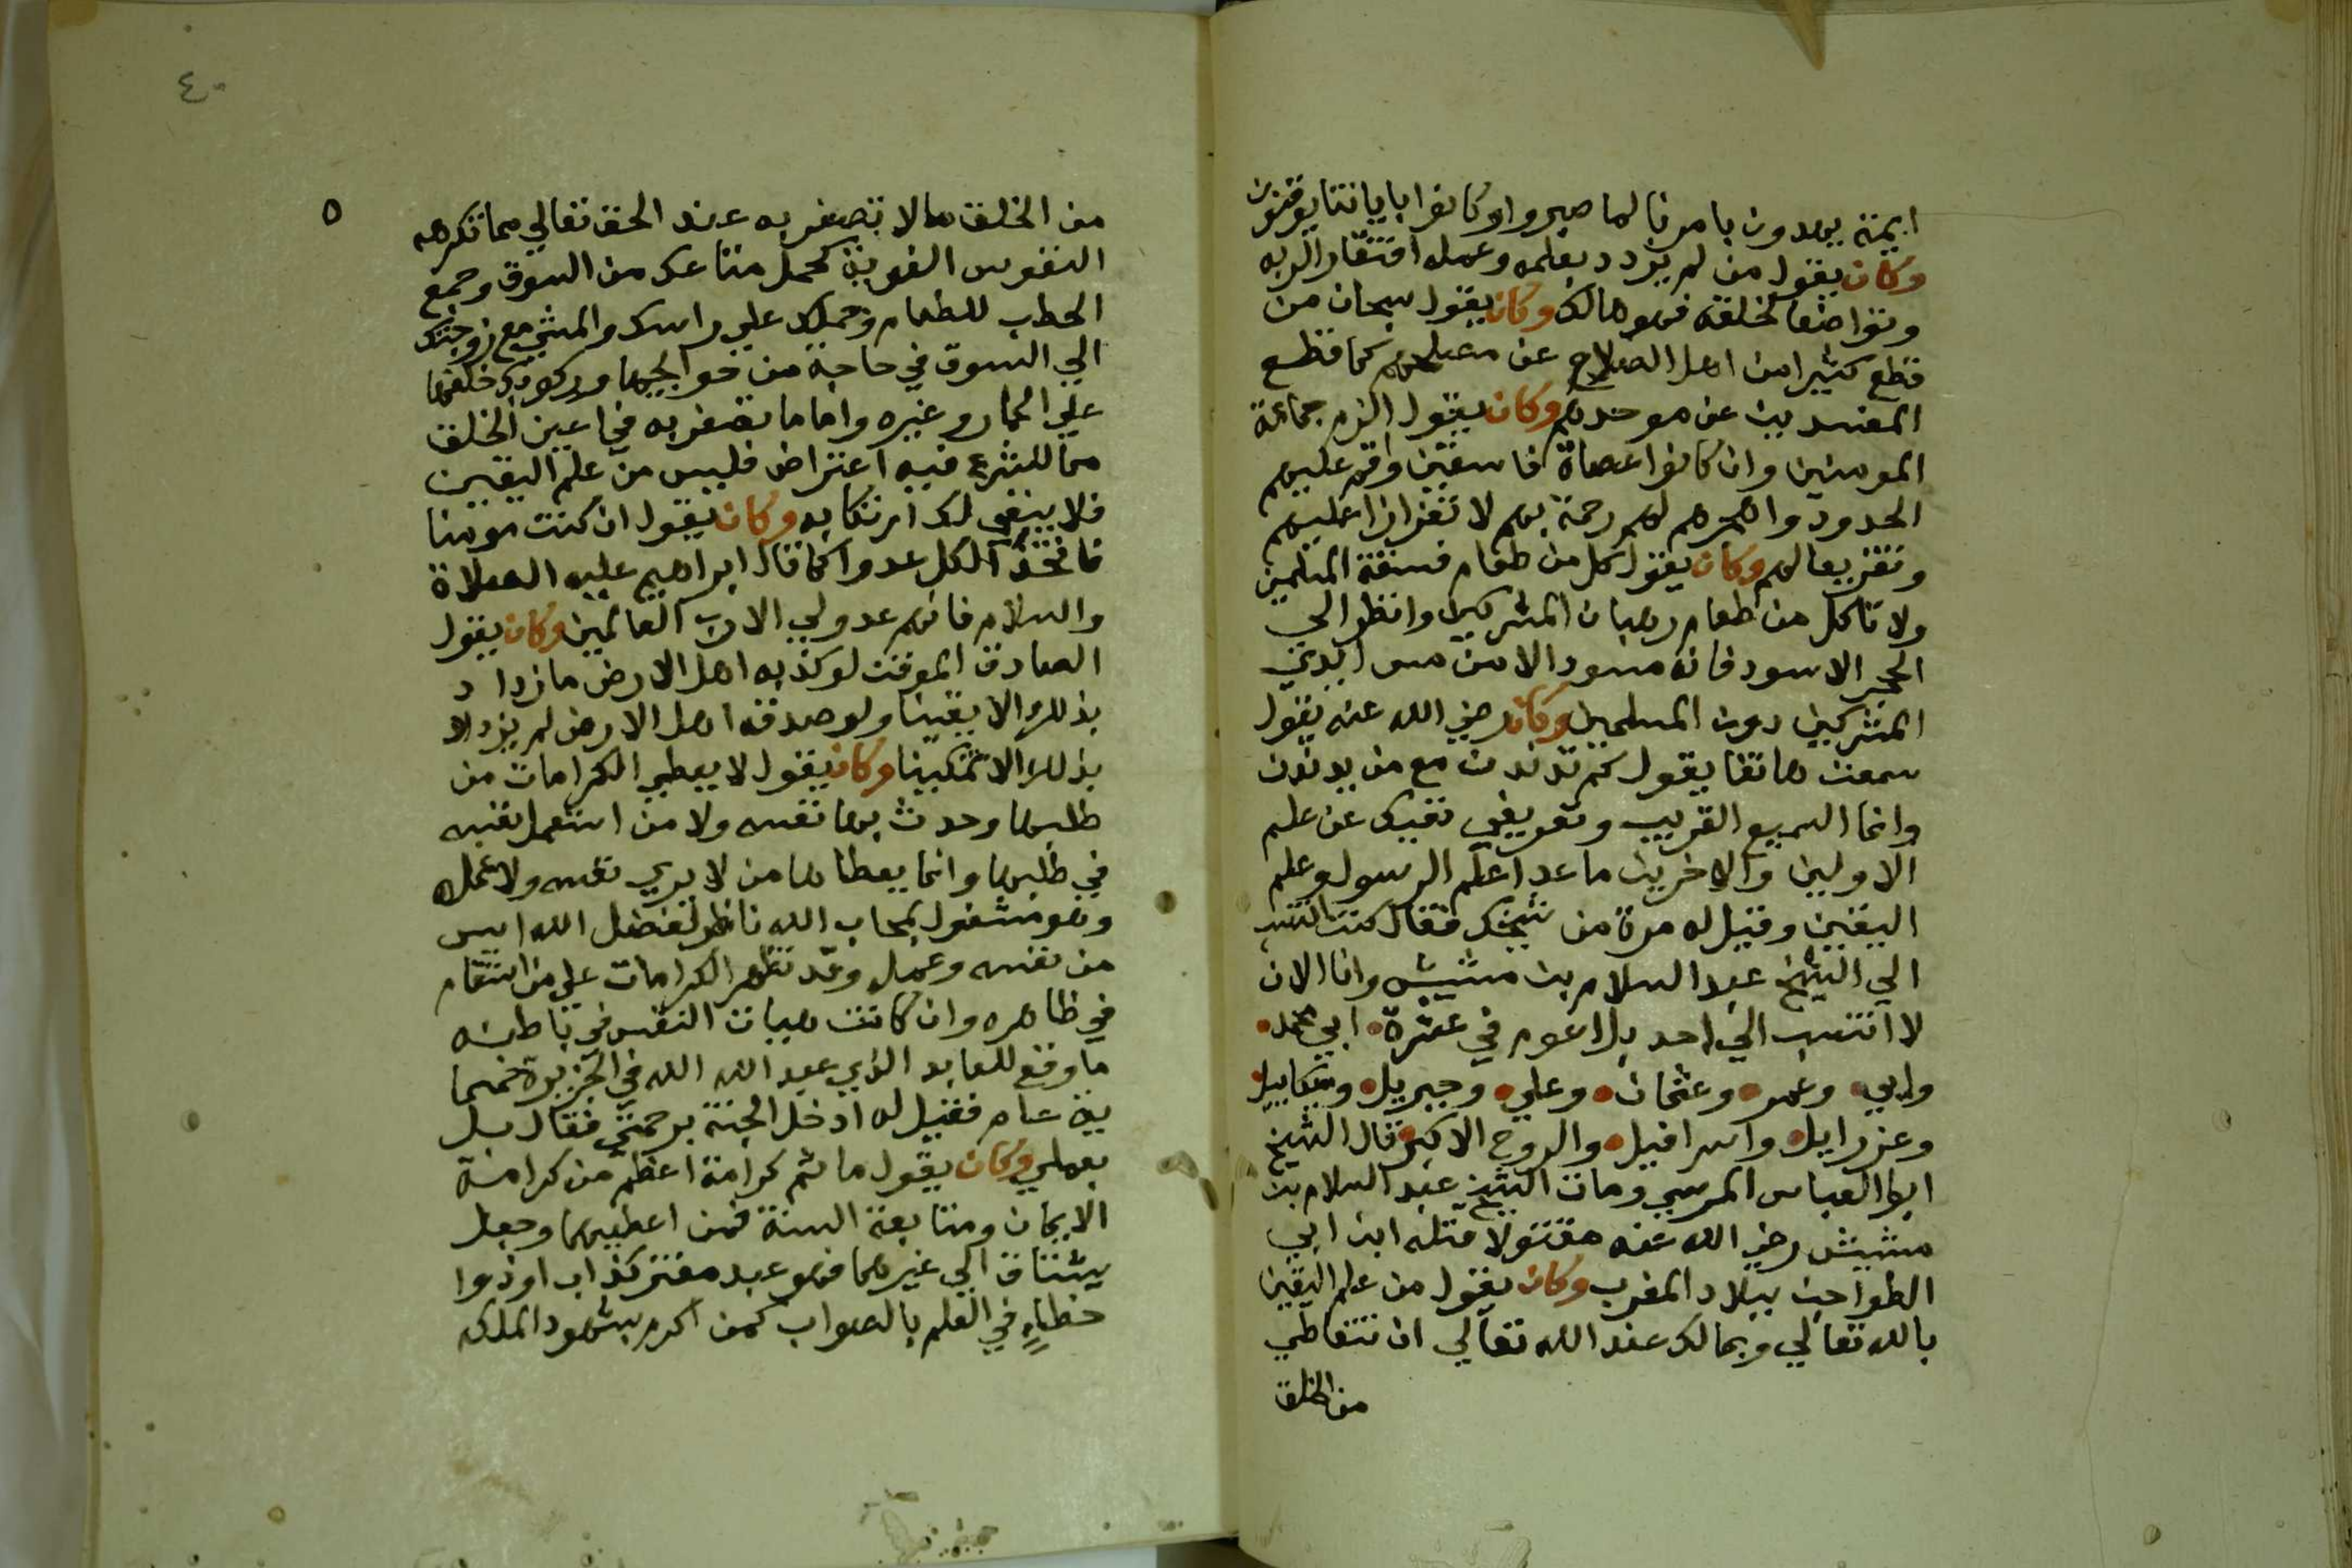 ايمة يهدون بامرنا لما صبروا وكانوا باياتنا يوقنون
وكان يقول من لم يزدد بعلمه وعمله افتقارا لربه
وتواضعا لخلقه فهو هالك وكان يقول سبحان من
قطع كثيرا من اهل الصلاح عن مصلحتهم كما قطع
المفسدين عن موجدهم وكان يقول الزم جماعة
المومنين وان كانوا عصاة فاسقين واقم عليهم
الحدود واهجرهم لهم رحمة بهم لا تعززا عليهم
وتقريعا لهم وكان يقول كل من طعام فسقة المسلمين
ولا تاكل من طعام رهبان المشركين وانظر الي
الحجر الاسود فانه ما سود الا من مس ايدي
المشركين دون المسلمين وكان رضي الله عنه يقول
سمعت هاتفا يقول كم تدندن مع من يدندن
وانا السميع القريب وتعريفي يغنيك عن علم
الاولين والاخرين ما عدا علم الرسول وعلم
اليقين وقيل له مرة من شيخك فقال كنت انتسب
الي الشيخ عبد السلام بن مشيش وانا الان
لا انتسب الي احد بل اعوم في عشرة ابحر محمد
وابي وعمر وعثمان وعلي وجبريل وميكاييل
وعزرايل واسرافيل والروح الاكبر قال الشيخ
ابوا العباس المرسي ومات الشيخ عبد السلام بن
مشيش رضي الله عنه مقتولا قتله ابن ابي
الطواجن ببلاد المغرب وكان يقول من علم اليقين
بالله تعالي وبما لك عند الله تعالي ان تتعاطي
من الخلق
٤٠
٥
من الخلق ما لا تصغر به عند الحق تعالي مما تكرهه
النفوس الغوية كحمل متاعك من السوق وجمع
الحطب للطعام وحملك علي راسك والمشي مع زوجتك
الي السوق في حاجة من حوايجها وركوبك خلفها
علي الحمار وغيره واما ما يصغر به في اعين الخلق
مما للشرع فيه اعتراض فليس من علم اليقين
فلا ينبغي لك ارتكابه وكان يقول ان كنت مومنا
فاتخذ الكل عدوا كما قال ابراهيم عليه الصلاة
والسلام فانهم عدو لي الا رب العالمين وكان يقول
الصادق الموقن لو كذبه اهل الارض ما ازداد
بذلك الا يقينا ولو صدقه اهل الارض لم يزدد
بذلك الا تمكينا وكان يقول لا يعطي الكرامات من
طلبها وحدث بها نفسه ولا من استعمل نفسه
في طلبها وانما يعطاها من لا يري نفسه ولا عمله
وهو مشغول بمحاب الله ناظر لفضل الله ايس
من نفسه وعمله وقد تظهر الكرامات علي من استقام
في ظاهره وان كانت هيات النفس في باطنه
ما وقع للعابد الذي عبد الله في الجزيرة خمسما
ية عام فقيل له ادخل الجنة برحمتي فقال بل
بعملي وكان يقول ما ثم كرامة اعظم من كرامة
الايمان ومتابعة السنة فمن اعطيهما وجعل
يشتاق الي غيرهما فهو عبد مفتر كذاب او ذوا
خطاء في العلم بالصواب كمن اكرم بشهود الملك